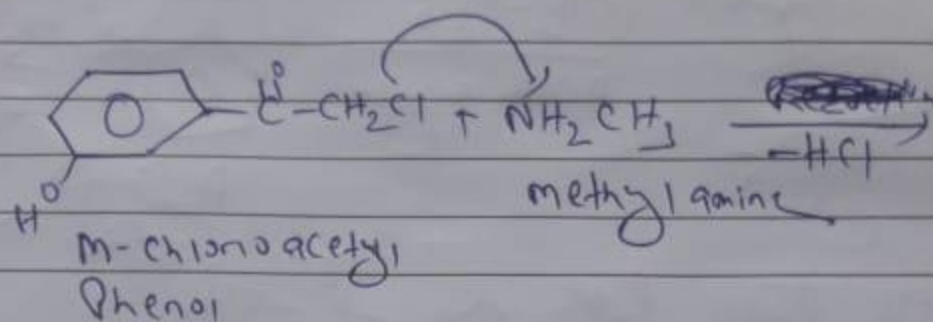 O
C-CH2Cl + NH2CH3
-HCl
HO
methylamine
m-chloroacetyl
Phenol